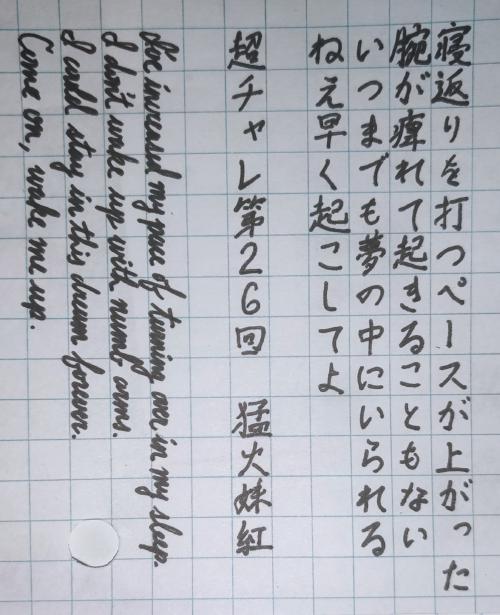 寝返りを打つペースが上がった
腕が痺れて起きることもない
いつまでも夢の中にいられる
ねえ早く起こしてよ
超チャレ第26回 猛火妹紅
I've increased my pace of turning over in my sleep.
I don't wake up with numb arms.
I could stay in this dream forever.
Come on, wake me up.